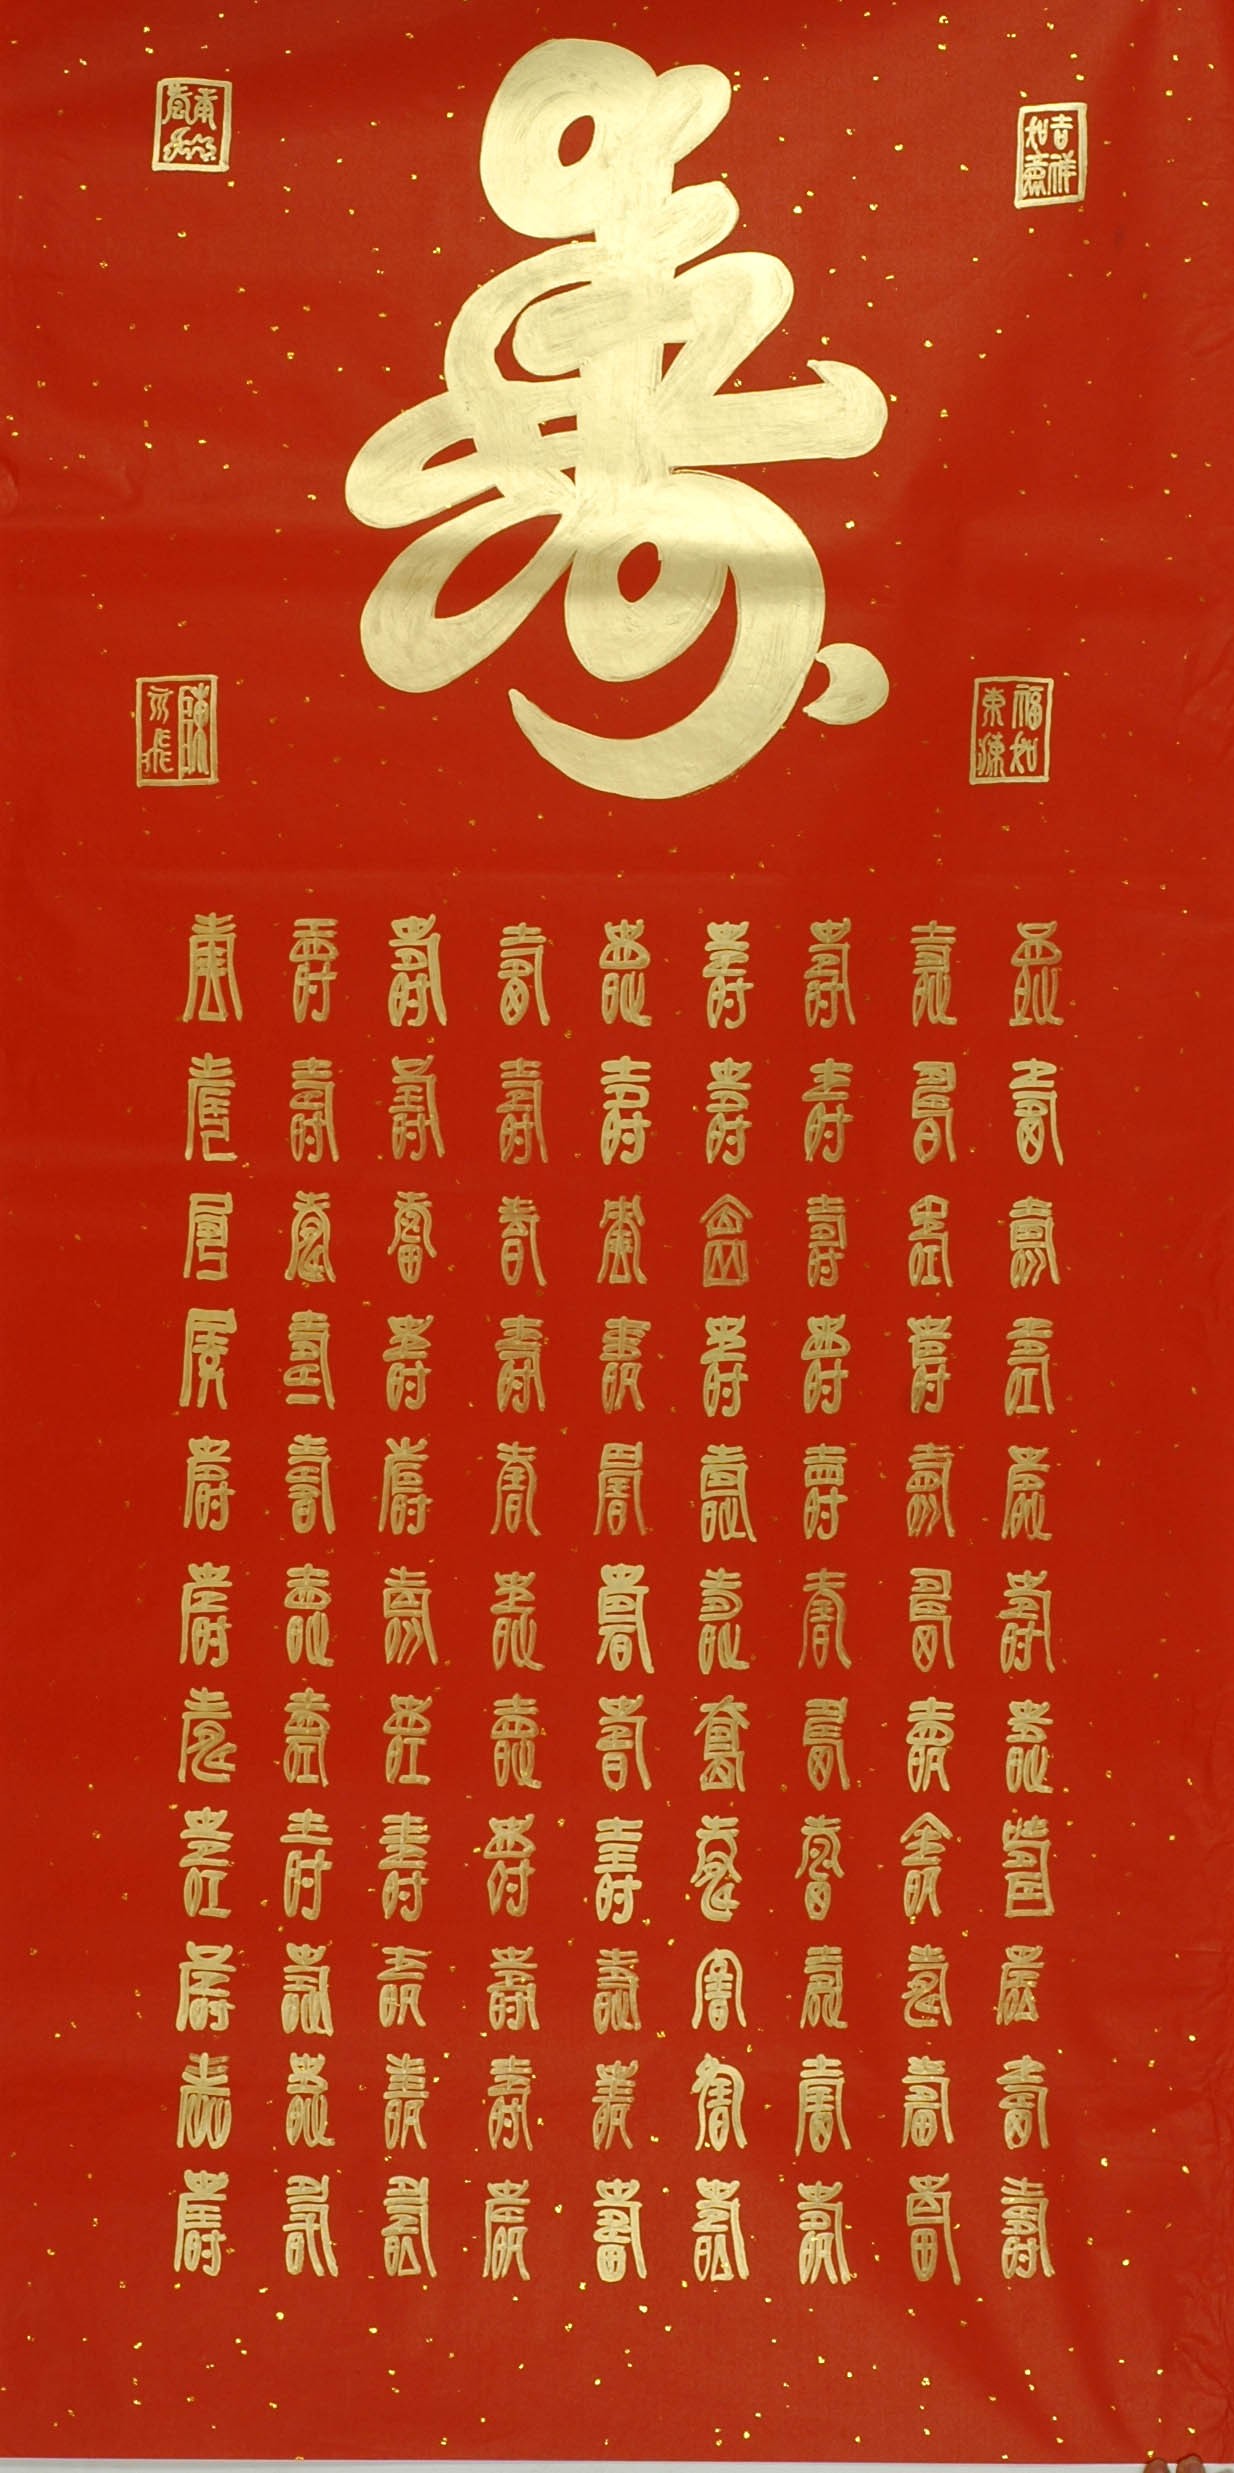 壽
吉祥
如意
福如
東
陳
壽壽壽壽壽壽壽壽壽壽壽
壽壽壽壽壽壽壽壽壽壽壽
壽壽壽壽壽壽壽壽壽壽壽
壽壽壽壽壽壽壽壽壽壽壽
壽壽壽壽壽壽壽壽壽壽壽
壽壽壽壽壽壽壽壽壽壽壽
壽壽壽壽壽壽壽壽壽壽壽
壽壽壽壽壽壽壽壽壽壽壽
壽壽壽壽壽壽壽壽壽壽壽